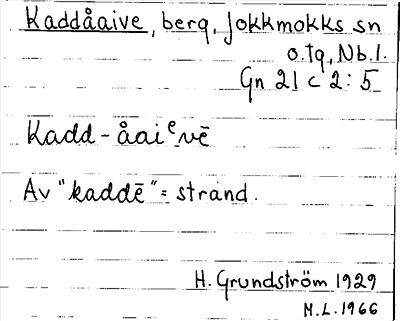 Kaddåaive, berg, Jokkmokks sn
o. tg, Nb. l.
Gn 21 c 2:5
Kadd-åaiᵉvē
Av "kaddē" = strand.
H. Grundström 1929
M.L. 1966